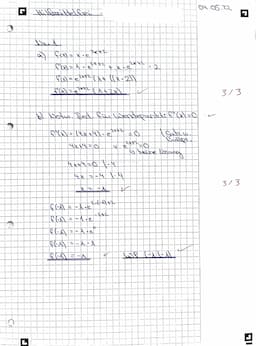 Hilfsmittelfrei
04.05.22
Nr. 1
a) f(x) = x · e^2x+2
f'(x) = 1 · e^2x+2 + x · e^2x+2 · 2
f'(x) = e^2x+2 (1 + (x · 2))
f'(x) = e^2x+2 (1 + 2x)
3/3
b) Notw. Bed. für Wendepunkt: f''(x) = 0
f''(x) = (4x+4) · e^2x+2 = 0
4x+4 = 0 e^2x+2 = 0
keine Lösung
4x+4 = 0 |-4
4x = -4 |:4
x = -1
3/3
f(-1) = -1 · e^2·(-1)+2
f(-1) = -1 · e
f(-1) = -1 · e^0
f(-1) = -1 · 1
f(-1) = -1
WP (-1|-1)